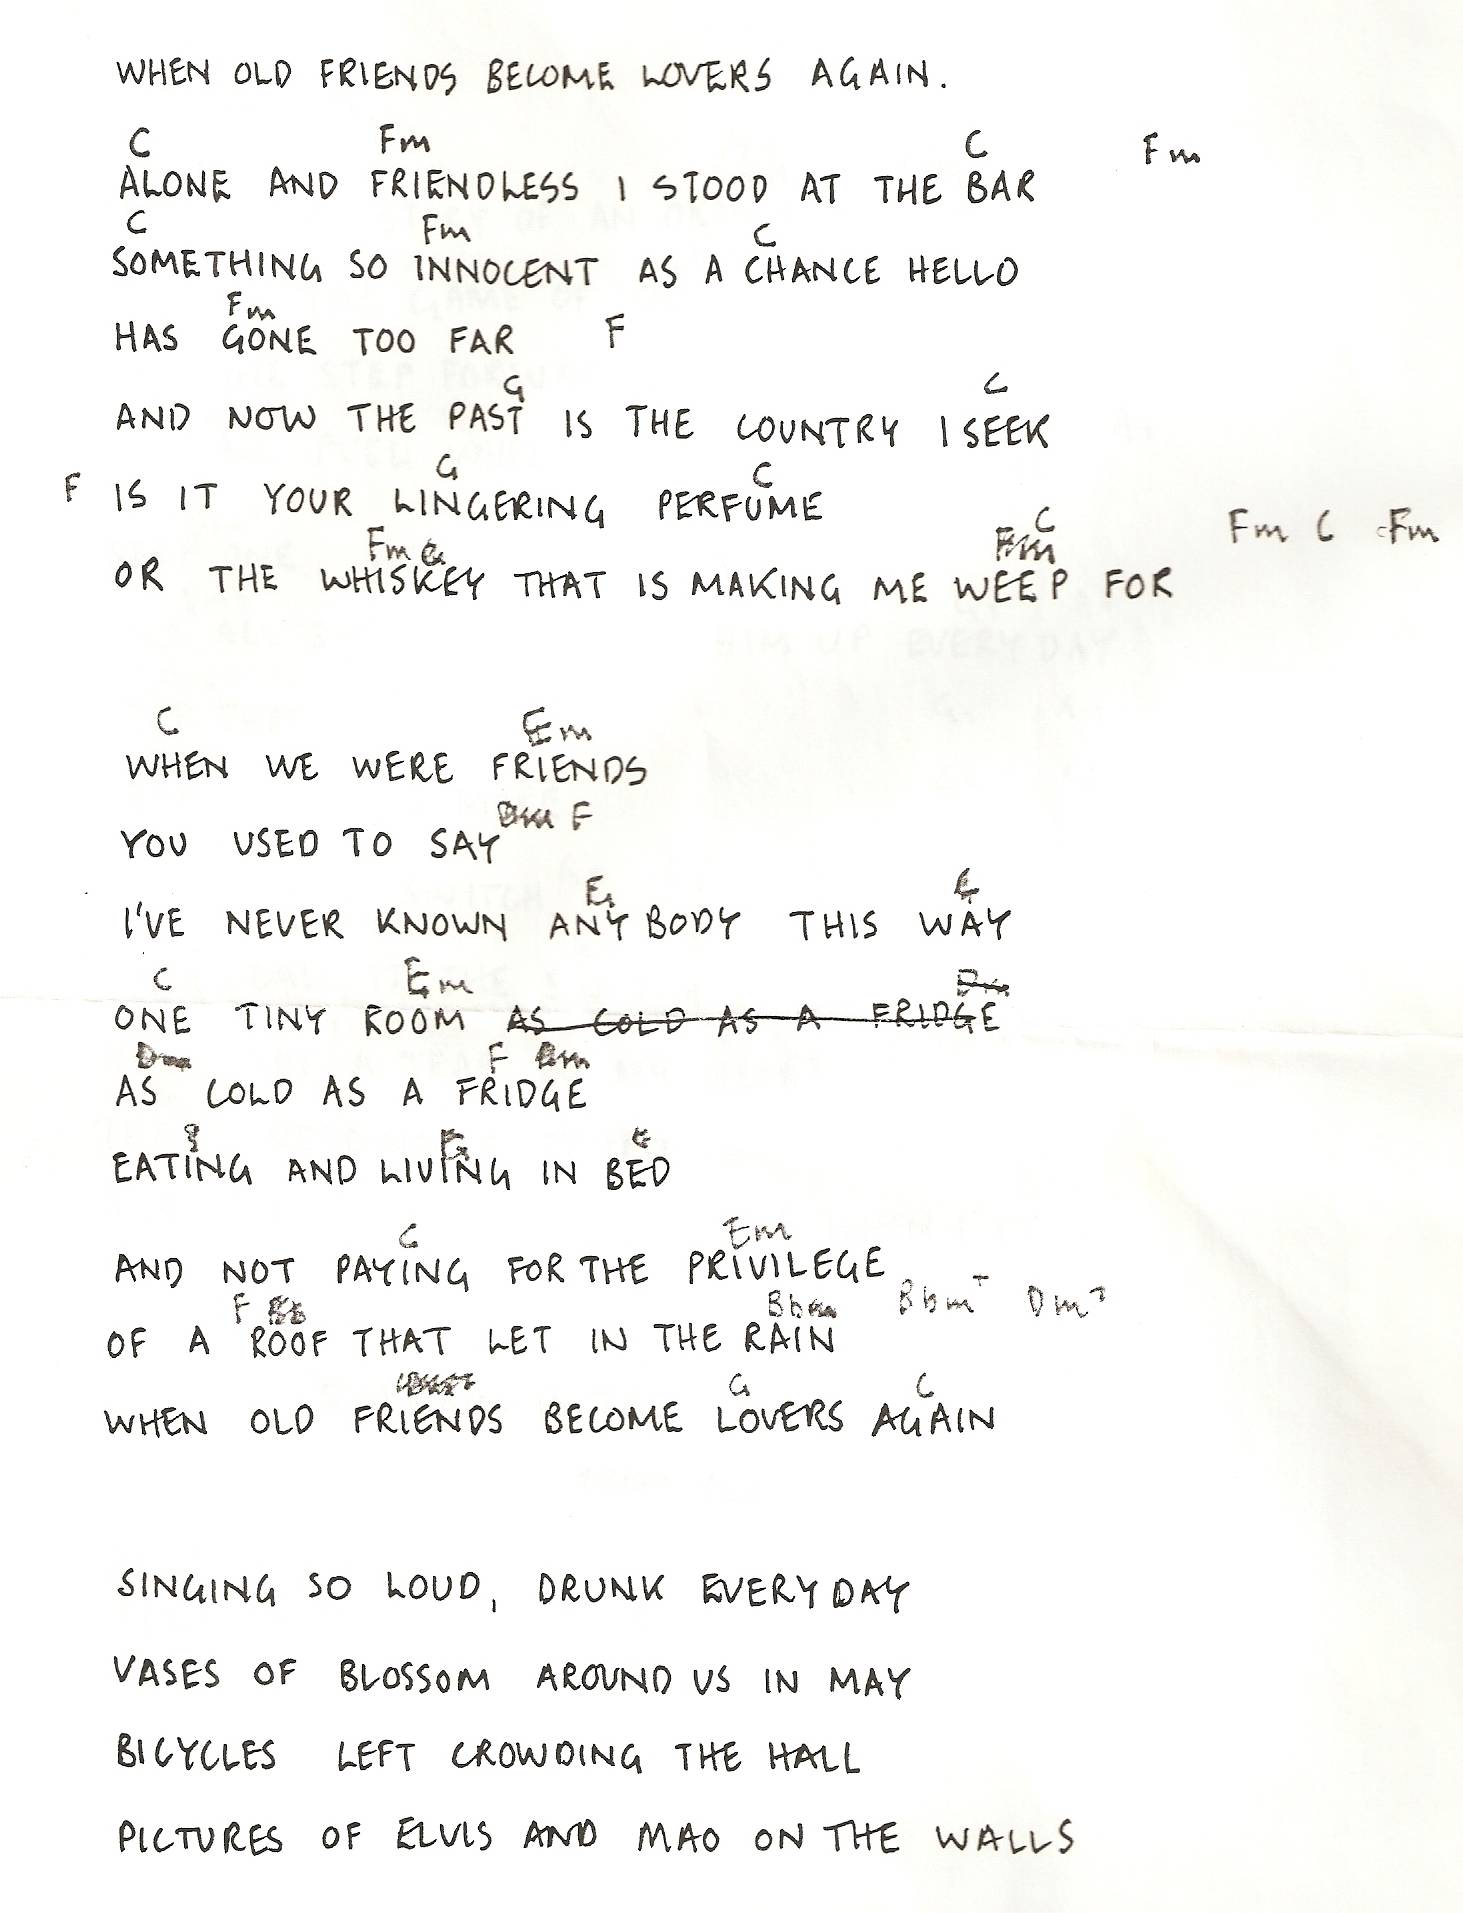 WHEN OLD FRIENDS BECOME LOVERS AGAIN.
C Fm C Fm
ALONE AND FRIENDLESS I STOOD AT THE BAR
C Fm C
SOMETHING SO INNOCENT AS A CHANCE HELLO
Fm
HAS GONE TOO FAR F
G C
AND NOW THE PAST IS THE COUNTRY I SEEK
G C
F IS IT YOUR LINGERING PERFUME
Fm C Fm C Fm
OR THE WHISKEY THAT IS MAKING ME WEEP FOR
C Em
WHEN WE WERE FRIENDS
F
YOU USED TO SAY
I'VE NEVER KNOWN ANYBODY THIS WAY
C Em
ONE TINY ROOM AS COLD AS A FRIDGE
F
AS COLD AS A FRIDGE
EATING AND LIVING IN BED
C Em
AND NOT PAYING FOR THE PRIVILEGE
F Bbm Bbm7 Dm7
OF A ROOF THAT LET IN THE RAIN
G C
WHEN OLD FRIENDS BECOME LOVERS AGAIN
SINGING SO LOUD, DRUNK EVERY DAY
VASES OF BLOSSOM AROUND US IN MAY
BICYCLES LEFT CROWDING THE HALL
PICTURES OF ELVIS AND MAO ON THE WALLS